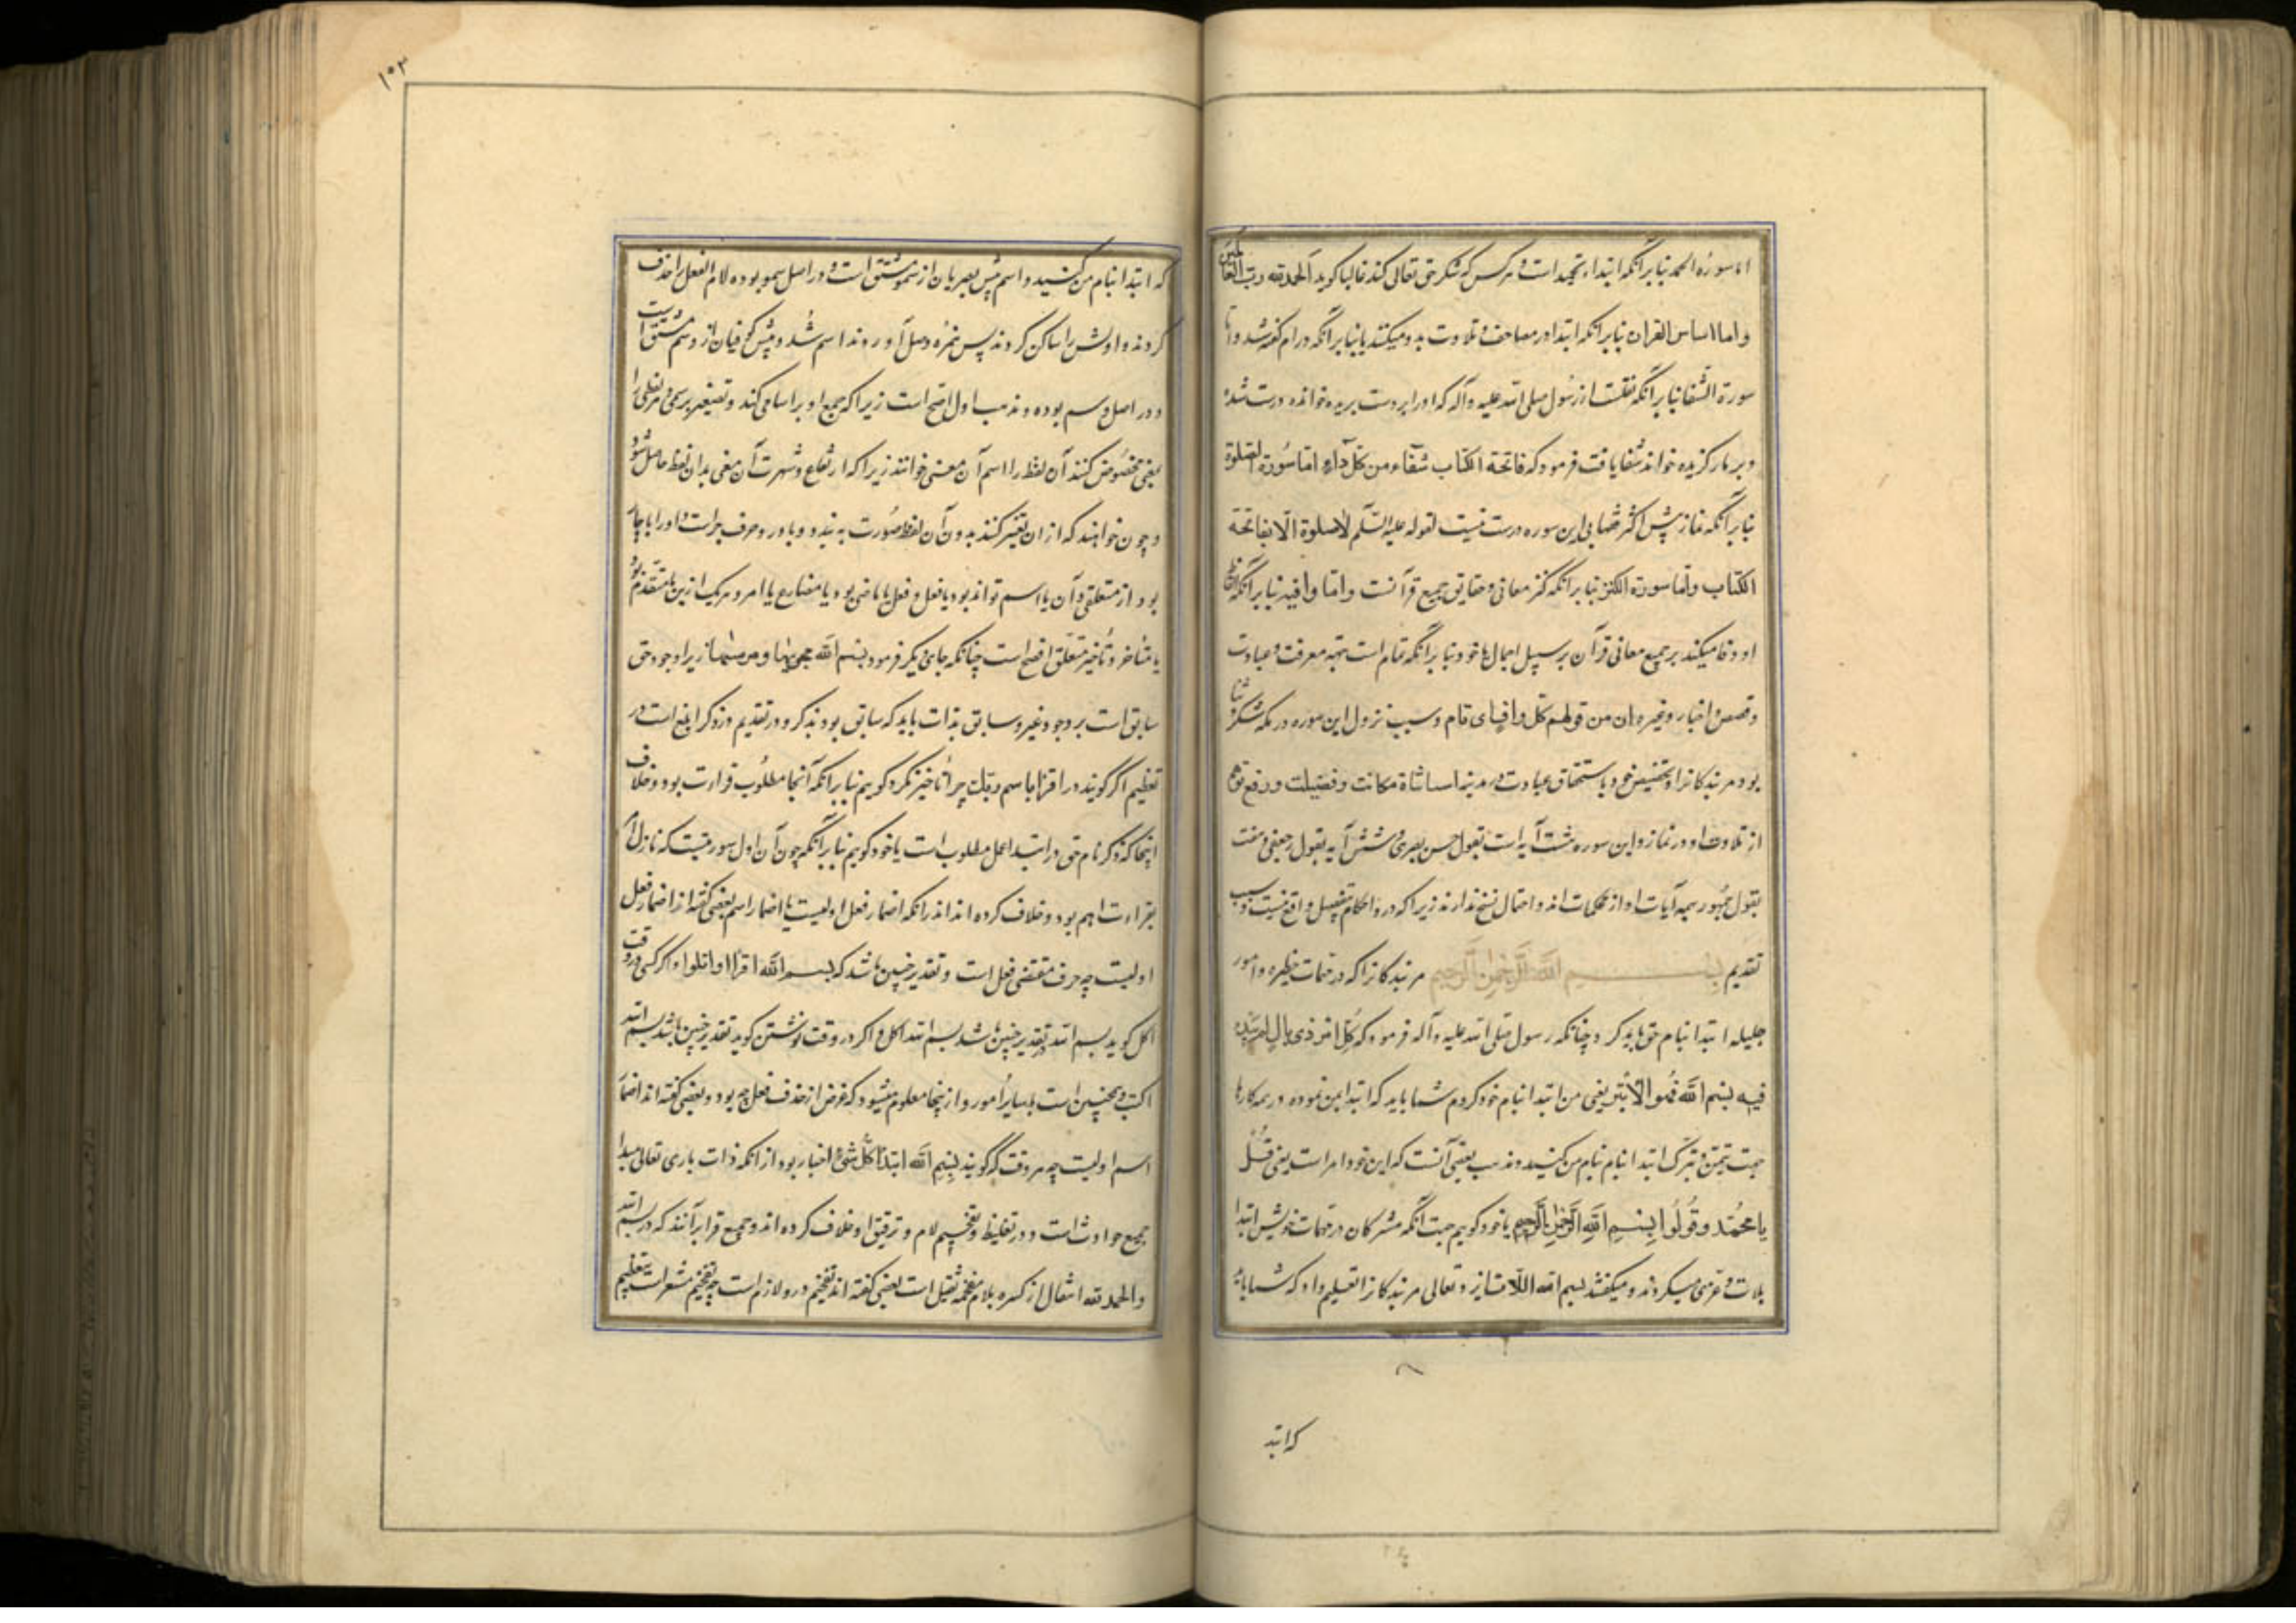 اما سورة الحمد بنابر آنکه ابتداء تحمید است و هر کس که شکر حق تعالی کند غالبا کوید الحمد لله رب العالمین
و اما اساس القرآن بنابر آنکه ابتدا در مصاحف و تلاوت بدو میکنند یا بنابر آنکه در ام گفته شد و اما
سورة الشفا بنابر آنکه نقلست از رسول صلی الله علیه و آله که او را بر دست بریده خوانده درست شده
و بر مار کزیده خواند شفا یافت فرمود که فاتحة الکتاب شفاء من کل داء اما سورة الصلوة
بنابر آنکه نماز پیش اکثر فقها بی این سوره درست نیست لقوله علیه السلم لا صلوة الا بفاتحة
الکتاب و اما سورة الکنز بنابر آنکه کنز معانی و حقایق جمیع قرآنست و اما وافیه بنابر آنکه
او وفا میکند بر جمیع معانی قرآن بر سبیل اجمال یا خود بنابر آنکه تمام است بجهة معرفت و عبادت
و قصص و اخبار و غیره ان من قولهم کل واف ای تام و سبب نزول این سوره در مکه شکر و ثنا
بود مر بندکانرا و تخصیص خود باستحقاق عبادت و در مدینه مکانت و فضیلت و رفع توهم
از تلاوت او در نماز و این سوره هشت آیه است بقول حسن بصری و شش آیه بقول جعفی و هفت
بقول جمهور همه آیات او از محکمات اند و احتمال نسخ ندارند زیرا که در و احکام بتفصیل واقع نیست و سبب
تقدیم بسم الله الرحمن الرحیم مر بندکانرا که در مهمات خطیره و امور
جلیله ابتدا بنام حق باید کرد چنانکه رسول صلی الله علیه و آله فرمود که کل امر ذی بال لم یبدء
فیه بسم الله فهو الابتر یعنی من ابتدا بنام خود کردم شما باید که ابتدا بمن نموده در همه کارها
جهت تیمن و تبرک ابتدا بنام من کنید و مذهب بعضی آنست که این خود امر است یعنی قل
یا محمد و قولوا بسم الله الرحمن الرحیم یا خود کوییم جهت آنکه مشرکان در مهمات خویش ابتدا
بلات و عزی میکردند و میکفتند بسم الله اللات ایزد تعالی مر بندکانرا تعلیم داد که شما باید
که ابتد
که ابتدا بنام من کنید و اسم پیش بصریان از سمو مشتق است و در اصل سمو بوده لام الفعل را حذف
کردند و اولش را ساکن کردند پس همزه وصل آوردند اسم شد و پیش کوفیان از وسم مشتق است
و در اصل وسم بوده و مذهب اول اصح است زیرا که جمع او بر اسامی کند و تصغیر بر سمی و هر لفظی را
بمعنی مخصوص کنند آن لفظ را اسم آن معنی خوانند زیرا که ارتفاع و شهرت آن معنی بدان لفظ حاصل شود
و چون خواهند که از ان تعبیر کنند بدون آن لفظ صورت نبندد و با در و حرف جر است و او را ناچار
بود از متعلقی و آن یا اسم تواند بود یا فعل و فعل یا ماضی بود یا مضارع یا امر و هر یک ازینها متقدم بود
یا متاخر و تاخیر متعلق افصح است چنانکه جای دیکر فرمود بسم الله مجریها و مرسیها زیرا وجود حق
سابق است بر وجود غیر و سابق بذات باید که سابق بود بذکر و در تقدیم و ذکر ابلغ است در
تعظیم اکر کویند در اقرا باسم ربک چرا تاخیر نکرد کوییم بنابر آنکه آنجا مطلوب قرات بود و خلاف
اینجا که ذکر نام حق در ابتدا عمل مطلوب است یا خود کوییم بنابر آنکه چون آن اول سوره‌یست که نازل شد
بقراءت اهم بود و خلاف کرده اند در آنکه اضمار فعل اولیست یا اضمار اسم بعضی گفته اند اضمار فعل
اولیست چه حرف مقتضی فعل است و تقدیر چنین باشد که بسم الله اقرا او اتلوا و اکر کسی در وقت
اکل کوید بسم الله تقدیر چنین باشد بسم الله اکل و اکر در وقت نوشتن کوید تقدیر چنین باشد بسم الله
اکتب و همچنین است بسایر امور و از ینجا معلوم میشود که غرض از حذف فعل چه بود و بعضی گفته اند اضمار
اسم اولیست چه هر وقت که کویند بسم الله ابتداء کل شئ اخبار بود از آنکه ذات باری تعالی مبدا
جمیع حوادث است و در تغلیظ و تفخیم لام و ترقیق او خلاف کرده اند و جمیع قرا بر آنند که در بسم الله
و الحمد لله انتقال از کسره بلام مفخمه ثقیل است بعضی گفته اند تفخیم در و لازم است چه تفخیم مشعر است بتعظیم
۱۰۳